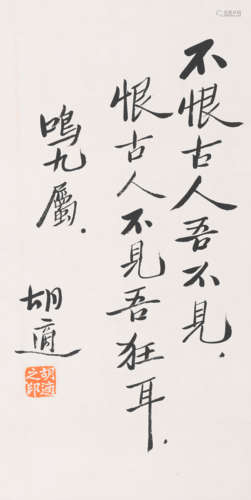 不恨古人吾不見.
恨古人不見吾狂耳.
鳴九屬.
胡適
胡適之印